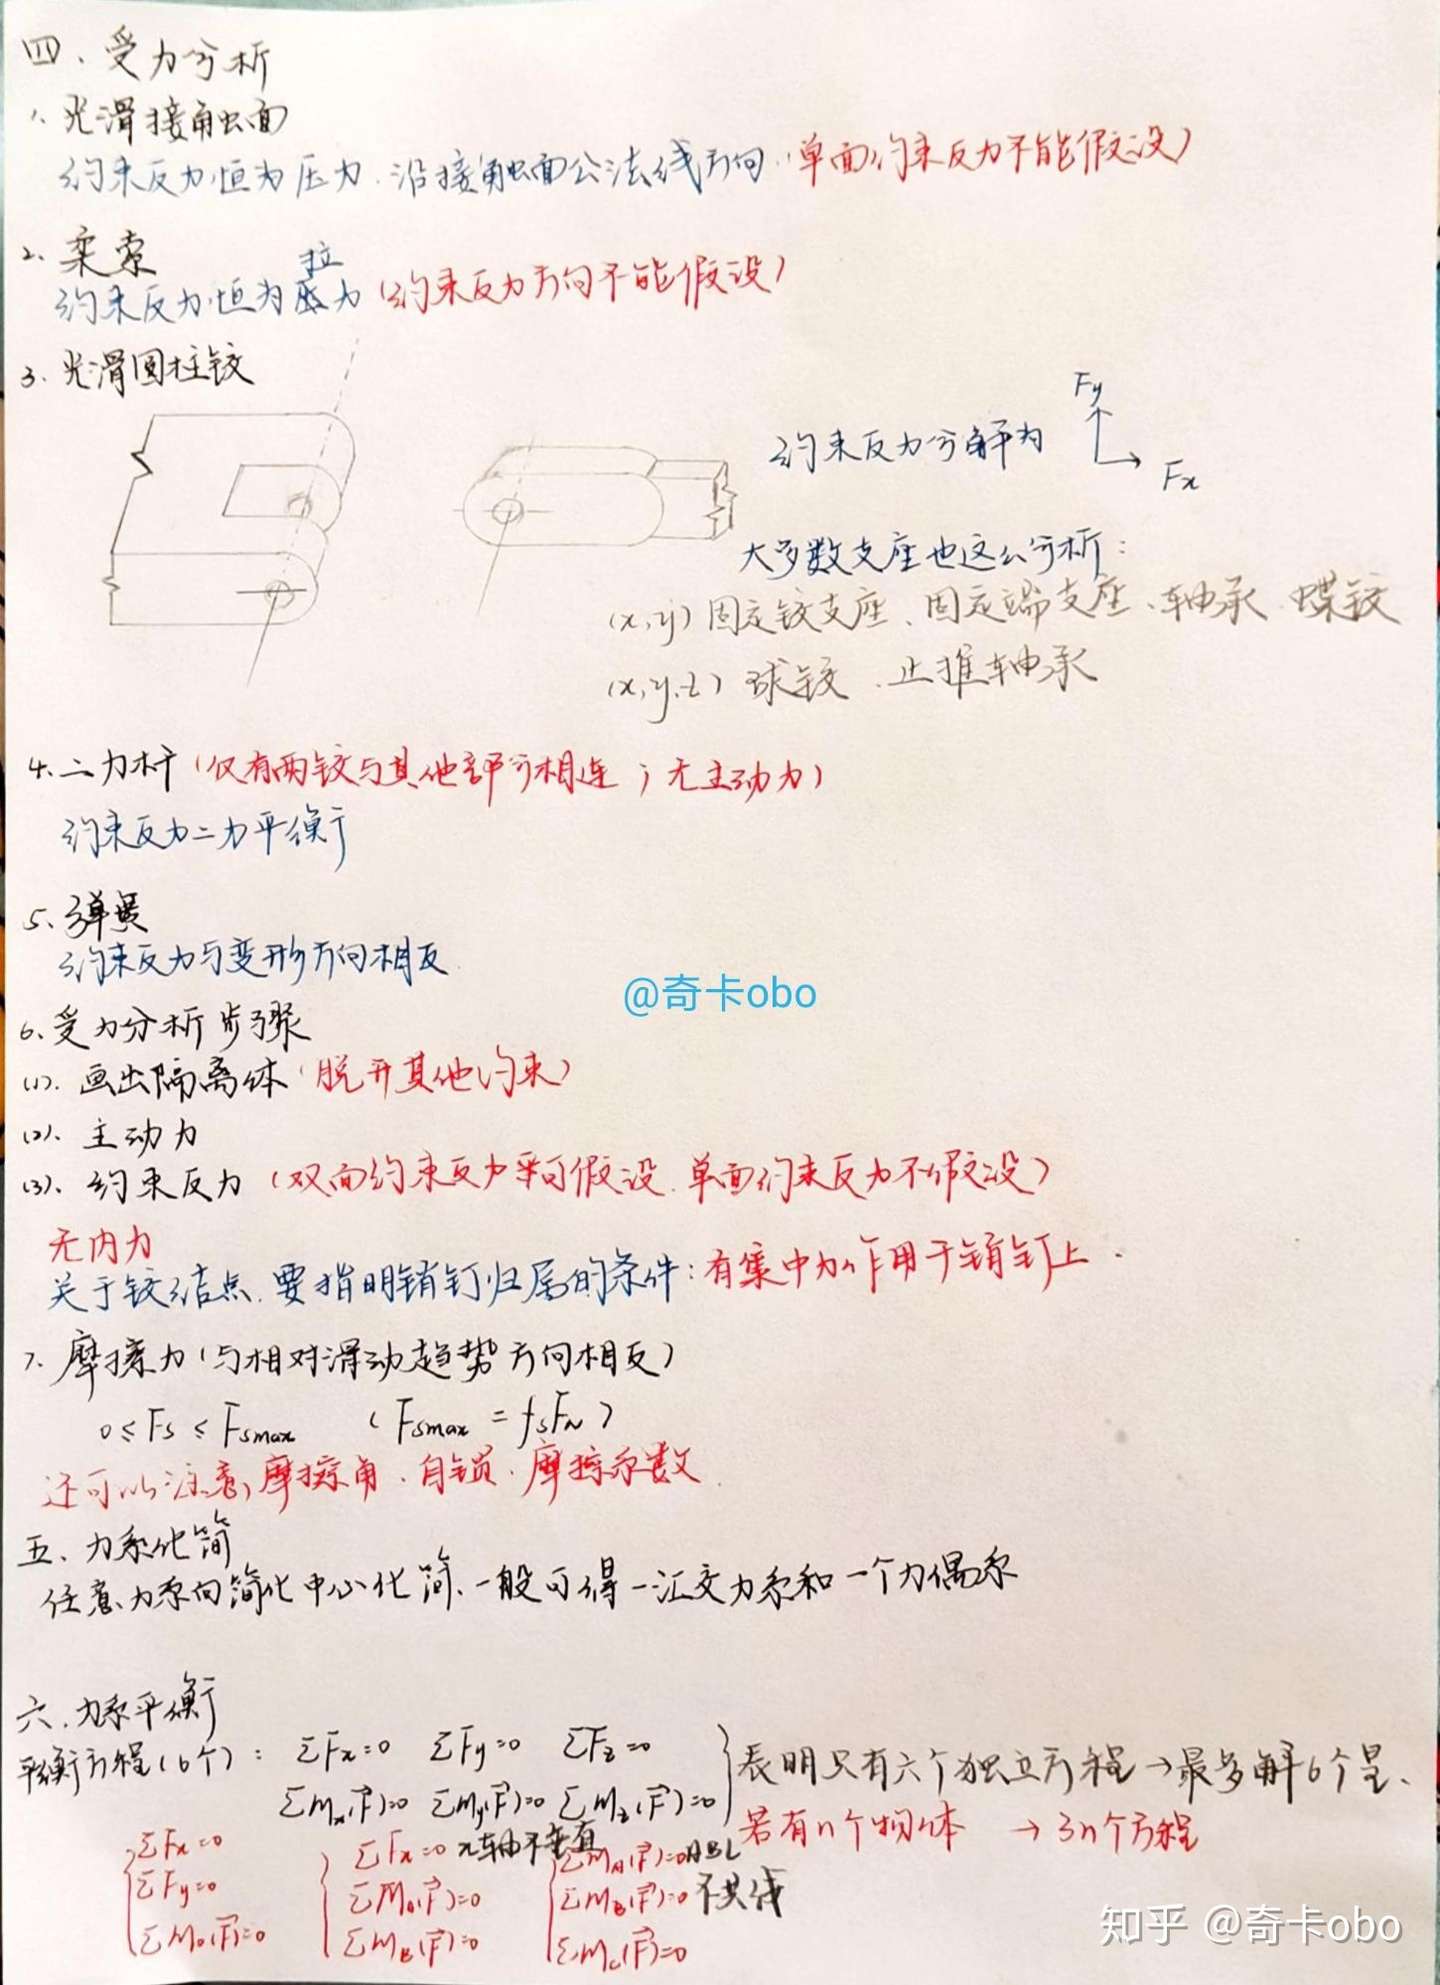 四、受力分析
1、光滑接触面
约束反力恒为压力.沿接触面公法线方向.(单面约束反力不能假设)
2、柔索
拉
约束反力恒为力(约束反力方向不能假设)
3、光滑圆柱铰
Fy
约束反力分解为
Fx
大多数支座也这么分析:
(x,y)固定铰支座、固定端支座、轴承、蝶铰
(x,y,z)球铰、止推轴承
4、二力杆(仅有两铰与其他部分相连;无主动力)
约束反力二力平衡
5、弹簧
约束反力与变形方向相反.
@奇卡obo
6、受力分析步骤
(1).画出隔离体(脱开其他约束)
(2).主动力
(3).约束反力(双面约束反力可假设.单面约束反力不假设)
无内力
关于铰结点.要指明销钉归属的条件:有集中力作用于销钉上.
7、摩擦力(与相对滑动趋势方向相反)
0≤Fs≤Fsmax (Fsmax=fsFN)
还可以注意摩擦角.自锁.摩擦系数.
五、力系化简
任意力系向简化中心化简、一般可得一汇交力系和一个力偶系
六、力系平衡
平衡方程(6个): ΣFx=0 ΣFy=0 ΣFz=0
ΣMx(F⃗)=0 ΣMy(F⃗)=0 ΣMz(F⃗)=0
表明只有六个独立方程→最多解6个量、
若有n个物体 →3n个方程
ΣFx=0
ΣFy=0
ΣMo(F⃗)=0
ΣFx=0 x轴不垂直
ΣMA(F⃗)=0
ΣMB(F⃗)=0
ΣMA(F⃗)=0
ΣMB(F⃗)=0 不共线
ΣMC(F⃗)=0
知乎 @奇卡obo